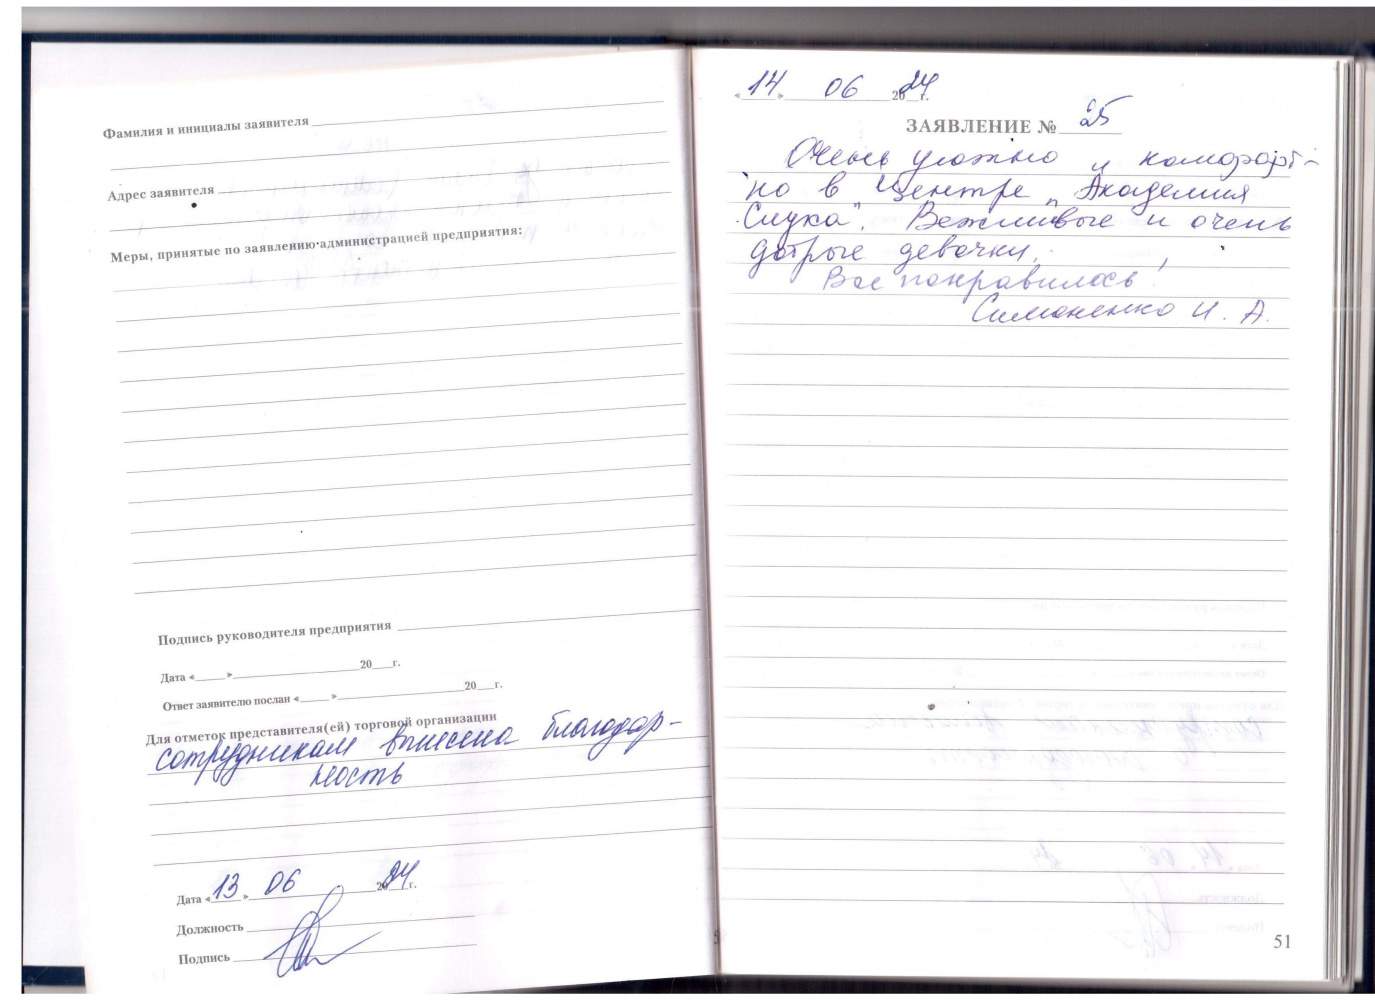 Фамилия и инициалы заявителя
Адрес заявителя
Меры, принятые по заявлению администрацией предприятия:
Подпись руководителя предприятия
Дата « » 20 г.
Ответ заявителю послан « » 20 г.
Для отметок представителя(ей) торговой организации
сотрудникам вынесена благодар-
ность
Дата «13» 06 2024 г.
Должность
Подпись
«14» 06 2024 г.
ЗАЯВЛЕНИЕ № 25
Очень уютно и комфорт-
но в Центре „Академия
Слуха". Вежливые и очень
добрые девочки.
Все понравилось!
Симоненко И. А.
51